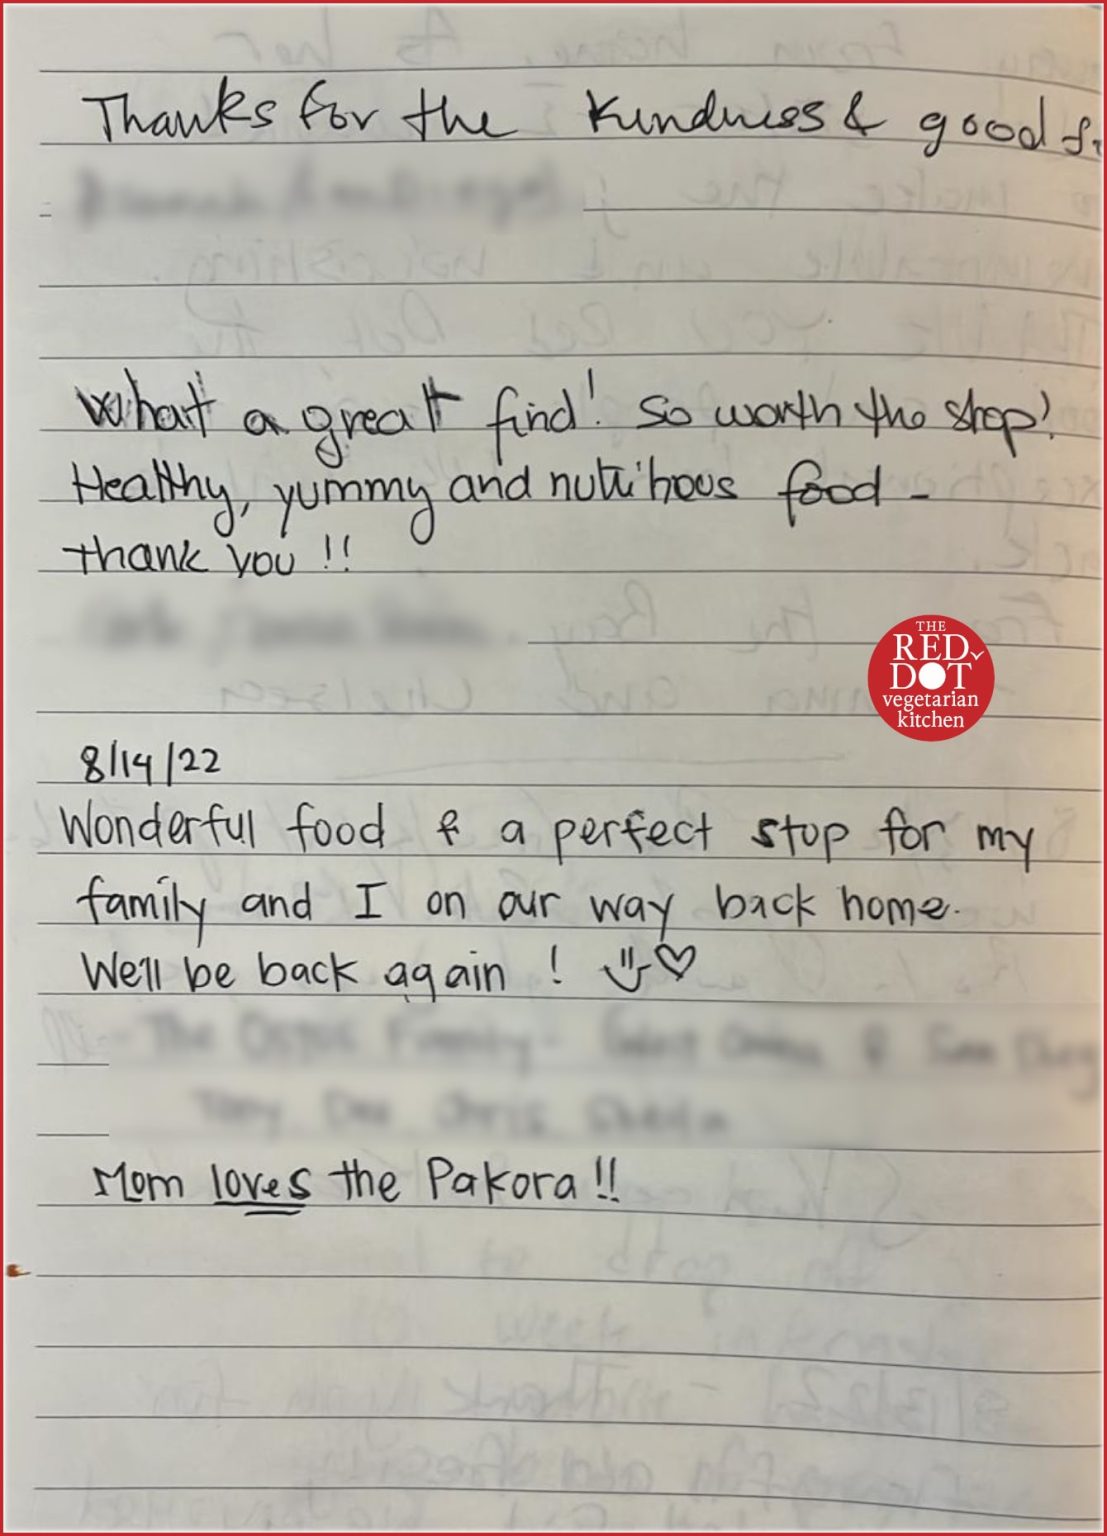 Thanks for the Kindness & good
What a great find! So worth the stop!
Healthy, yummy and nutritious food -
thank you !!
THE
RED
DOT
vegetarian
kitchen
8/14/22
Wonderful food & a perfect stop for my
family and I on our way back home.
We'll be back again !
Mom loves the Pakora !!